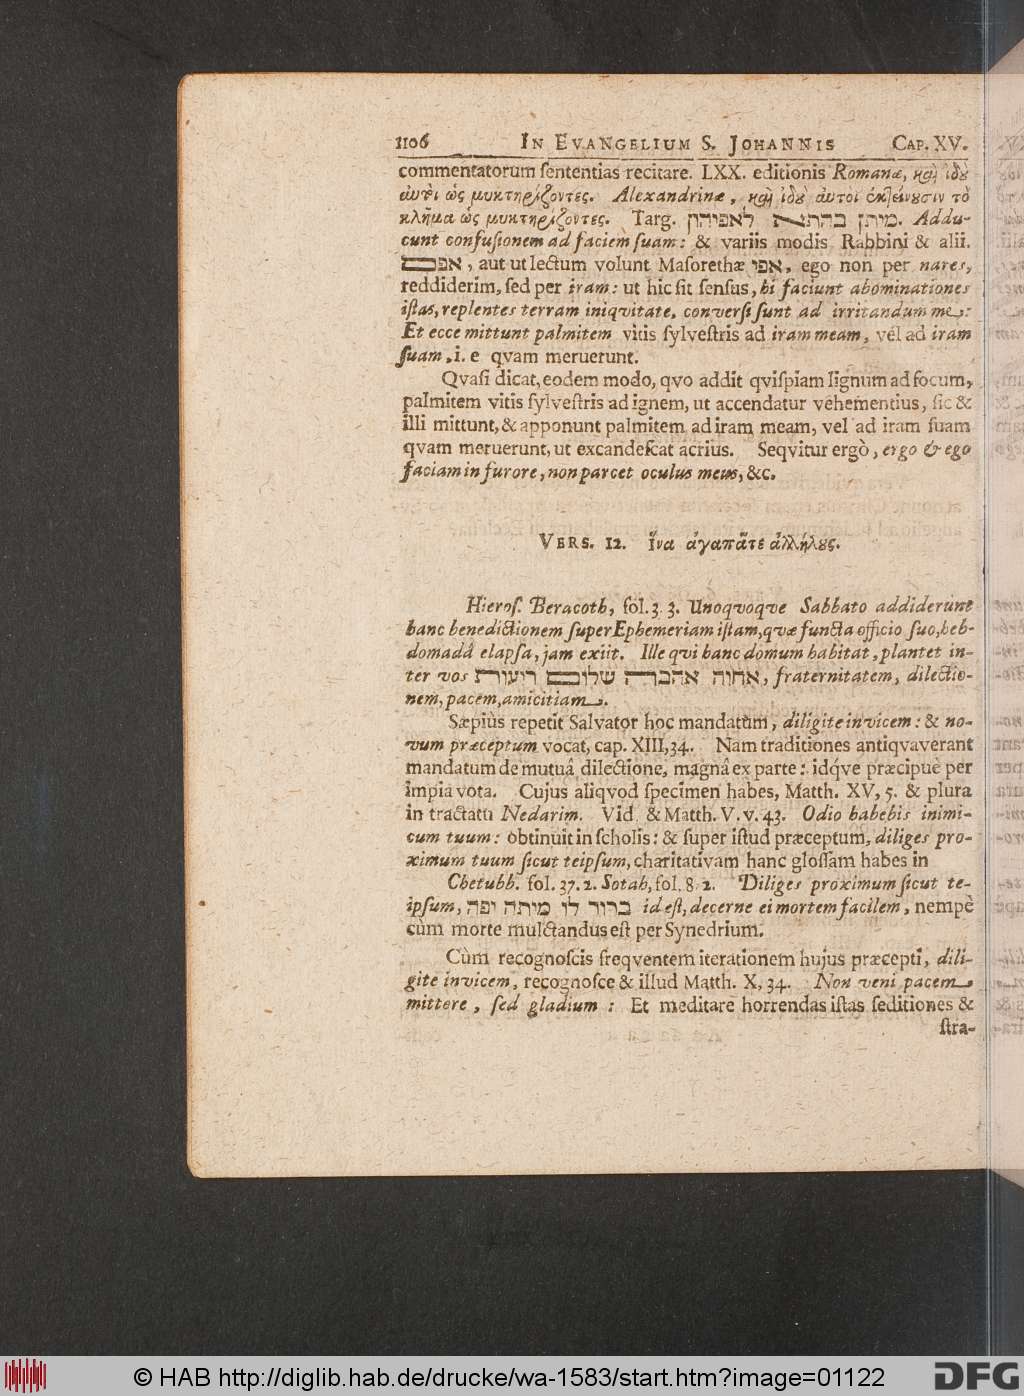 1106 IN EVANGELIUM S. JOHANNIS CAP. XV.
commentatorum ſententias recitare. LXX. editionis Romanæ, καὶ ἰδοὺ
αὐτοὶ ὡς μυκτηρίζοντες. Alexandrinæ, καὶ ἰδοὺ αὐτοὶ ἐκτείνουσιν τὸ
κλῆμα ὡς μυκτηρίζοντες. Targ. מיתן בהתא לאפיהון. Addu-
cunt confuſionem ad faciem ſuam: & variis modis Rabbini & alii.
אפם, aut ut lectum volunt Maſorethæ אפי, ego non per nares,
reddiderim, ſed per iram: ut hic ſit ſenſus, hi faciunt abominationes
iſtas, replentes terram iniqvitate, converſi ſunt ad irritandum me:
Et ecce mittunt palmitem vitis ſylveſtris ad iram meam, vel ad iram
ſuam, i. e qvam meruerunt.
Qvaſi dicat, eodem modo, qvo addit qviſpiam lignum ad focum,
palmitem vitis ſylveſtris ad ignem, ut accendatur vehementius, ſic &
illi mittunt, & apponunt palmitem ad iram meam, vel ad iram ſuam
qvam meruerunt, ut excandeſcat acrius. Seqvitur ergò, ergo & ego
faciam in furore, non parcet oculus meus, &c.
VERS. 12. ἵνα ἀγαπᾶτε ἀλλήλους.
Hieroſ. Beracoth, fol. 3. 3. Unoqvoqve Sabbato addiderunt
hanc benedictionem ſuper Ephemeriam iſtam, qvæ functa officio ſuo, heb-
domadâ elapſa, jam exiit. Ille qvi hanc domum habitat, plantet in-
ter vos אחוה אהברה שלום ריעות, fraternitatem, dilectio-
nem, pacem, amicitiam.
Sæpiùs repetit Salvator hoc mandatum, diligite invicem: & no-
vum præceptum vocat, cap. XIII, 34. Nam traditiones antiqvaverant
mandatum de mutuâ dilectione, magnâ ex parte: idq́ve præcipuè per
impia vota. Cujus aliqvod ſpecimen habes, Matth. XV, 5. & plura
in tractatu Nedarim. Vid. & Matth. V. v. 43. Odio habebis inimi-
cum tuum: obtinuit in ſcholis: & ſuper iſtud præceptum, diliges pro-
ximum tuum ſicut teipſum, charitativam hanc gloſſam habes in
Chetubb. fol. 37. 2. Sotah, fol. 8. 2. Diliges proximum ſicut te-
ipſum, ברור לו מיתה יפה id eſt, decerne ei mortem facilem, nempè
cùm morte mulctandus eſt per Synedrium.
Cùm recognoſcis freqventem iterationem hujus præcepti, dili-
gite invicem, recognoſce & illud Matth. X, 34. Non veni pacem
mittere, ſed gladium: Et meditare horrendas iſtas ſeditiones &
ſtra-
© HAB http://diglib.hab.de/drucke/wa-1583/start.htm?image=01122
DFG